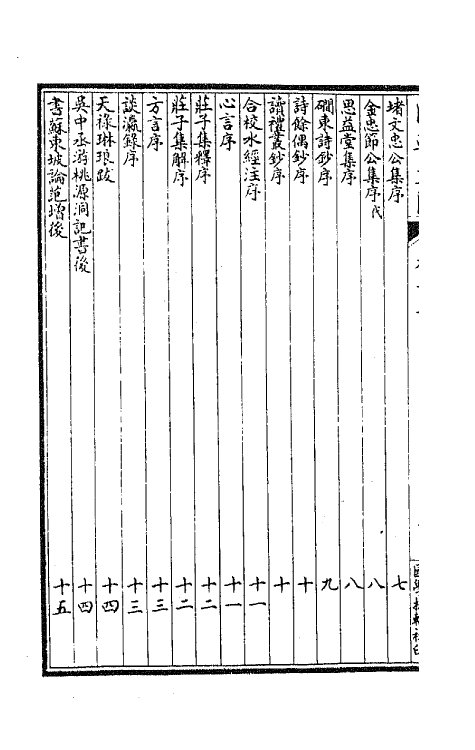 堵文忠公集序 七
金忠節公集序代 八
思益堂集序 八
磵東詩鈔序 九
詩餘偶鈔序 十
讀禮叢鈔序 十
合校水經注序 十一
心言序 十一
莊子集釋序 十二
莊子集解序 十二
方言序 十三
談瀛錄序 十三
天祿琳琅跋 十四
吳中丞游桃源洞記書後 十四
書蘇東坡論范增後 十五